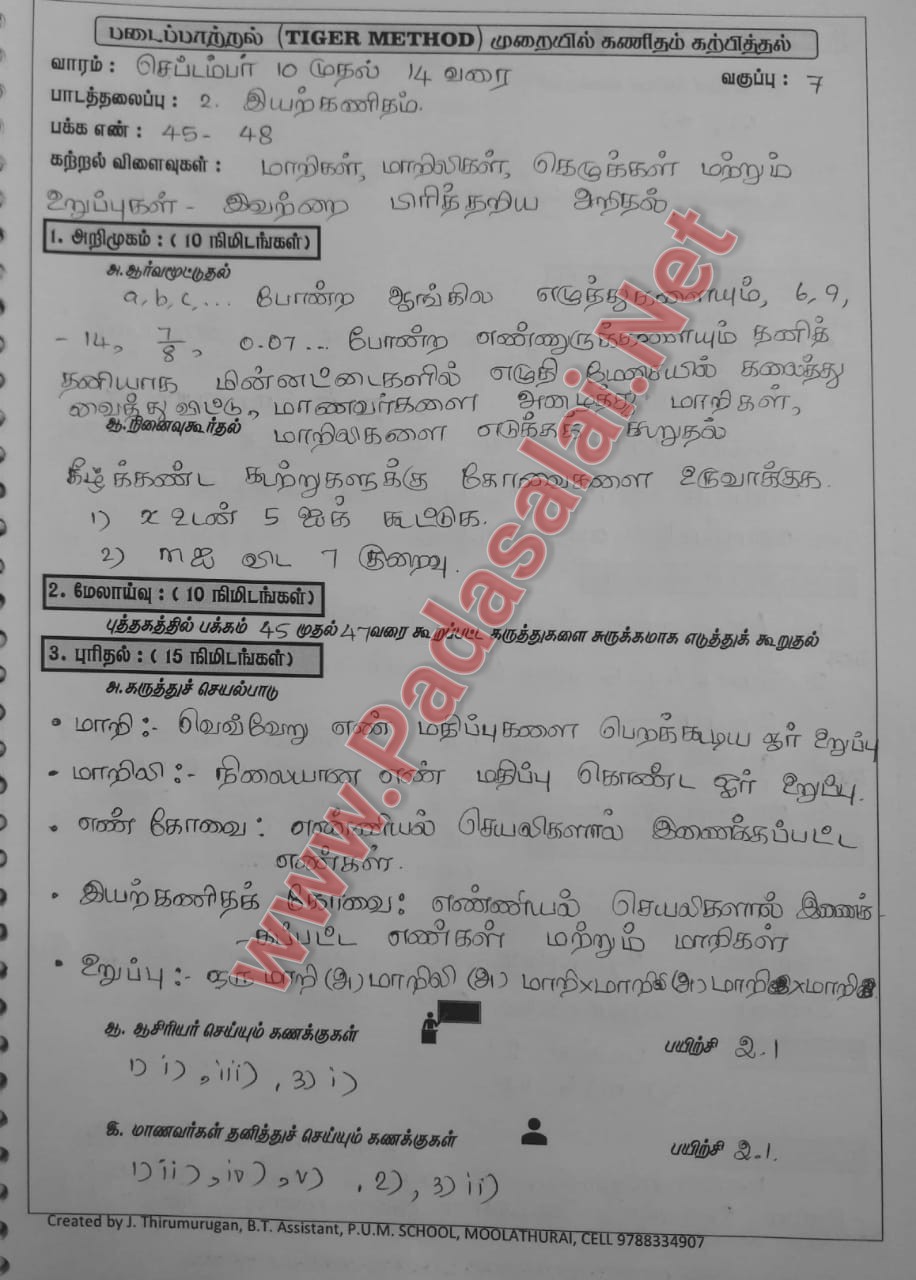 படைப்பாற்றல் (TIGER METHOD) முறையில் கணிதம் கற்பித்தல்
வாரம் : செப்டம்பர் 10 முதல் 14 வரை வகுப்பு : 7
பாடத்தலைப்பு : 2. இயற்கணிதம்.
பக்க எண் : 45 - 48
கற்றல் விளைவுகள் : மாறிகள், மாறிலிகள், கெழுக்கள் மற்றும்
உறுப்புகள் - இவற்றை பிரித்தறிய அறிதல்
1. அறிமுகம் : ( 10 நிமிடங்கள்)
அ.ஆர்வமூட்டுதல்
a, b, c, ... போன்ற ஆங்கில எழுத்துகளையும், 6, 9,
- 14, 7/8, 0.07 ... போன்ற எண்ணுருக்களையும் தனித்
தனியாக மின்னட்டைகளில் எழுதி மேசையில் கலைத்து
வைத்து விட்டு, மாணவர்களை அழைத்து மாறிகள்,
ஆ.நினைவுகூர்தல் மாறிலிகளை எடுக்கக் கூறுதல்
கீழ்க்கண்ட கூற்றுகளுக்கு கோவைகளை உருவாக்குக.
1) x உடன் 5 ஐக் கூட்டுக.
2) m ஐ விட 7 குறைவு.
2. மேலாய்வு : ( 10 நிமிடங்கள்)
புத்தகத்தில் பக்கம் 45 முதல் 47 வரை கூறப்பட்ட கருத்துகளை சுருக்கமாக எடுத்துக் கூறுதல்
3. புரிதல் : ( 15 நிமிடங்கள்)
அ.கருத்துச் செயல்பாடு
• மாறி :- வெவ்வேறு எண் மதிப்புகளை பெறக்கூடிய ஓர் உறுப்பு
• மாறிலி :- நிலையான எண் மதிப்பு கொண்ட ஓர் உறுப்பு.
• எண் கோவை : எண்ணியல் செயலிகளால் இணைக்கப்பட்ட
எண்கள்.
• இயற்கணிதக் கோவை : எண்ணியல் செயலிகளால் இணைக்
கப்பட்ட எண்கள் மற்றும் மாறிகள்
• உறுப்பு :- ஒரு மாறி (அ) மாறிலி (அ) மாறி×மாறி (அ) மாறி×மாறி
ஆ. ஆசிரியர் செய்யும் கணக்குகள் பயிற்சி 2.1
1) i) , iii) , 3) i)
இ. மாணவர்கள் தனித்துச் செய்யும் கணக்குகள் பயிற்சி 2.1.
1) ii) , iv) , v) , 2) , 3) ii)
Created by J. Thirumurugan, B.T. Assistant, P.U.M. SCHOOL, MOOLATHURAI, CELL 9788334907
www.Padasalai.Net